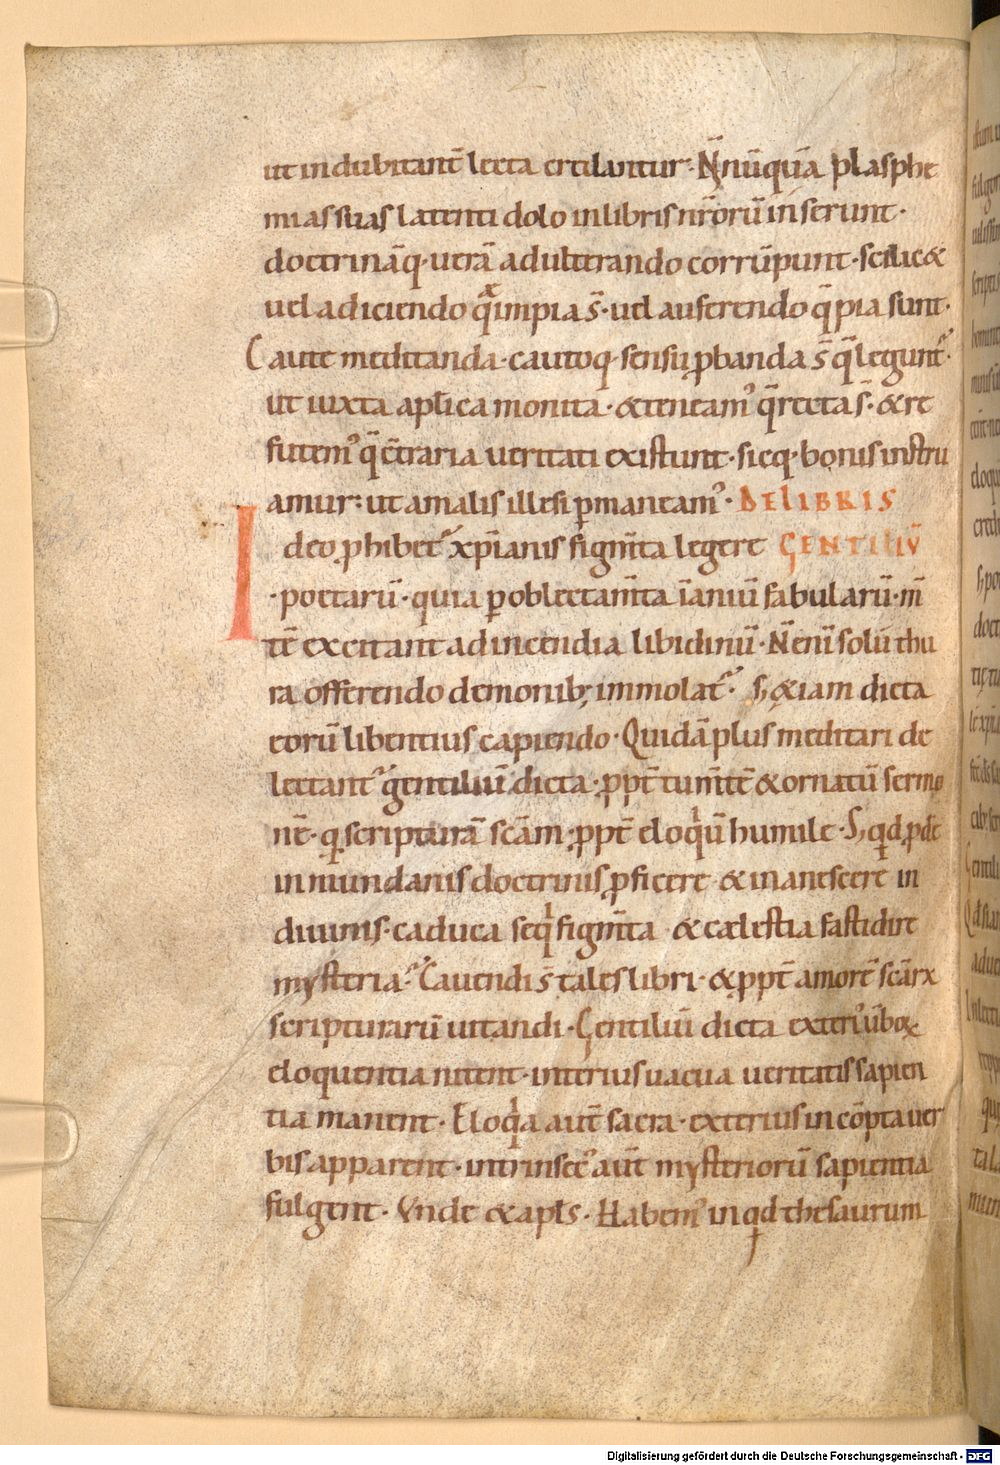 ut indubitant̄ lecta credantur · N̄nūquā plasphe
mias suas latenti dolo in libris nr̄orū inserunt ·
doctrināq · uerā adulterando corrūpunt · scilic&
uel adiciendo q̄ impia s̄ · uel auferendo q̄ pia sunt ·
Caute meditanda · cautoq · sensu ꝓbanda s̄ q̄ legunt᷑ ·
ut iuxta apl̄ica monita · & teneamꝰ q̄ recta s̄ · & re
futemꝰ q̄ c̄traria ueritati existunt · sicq · bonis instru
amur · ut a malis illesi ꝑmaneamꝰ · DE LIBRIS
Ideo ꝓhibet᷑ xp̄ianis figm̄ta legere GENTILIŪ
· poetarū · quia ꝑ oblectam̄ta īaniū fabularū · m̄
tē excitant ad incendia libidinū · N̄ enī solū thu
ra offerendo demonib; immolat᷑ · S; &iam dicta
eorū libentius capiendo · Quidā plus meditari de
lectant᷑ gentiliū dicta · ꝓpt̄ tum̄tē & ornatū sermo
nē · q̄ scripturā scām · ꝓpt̄ eloqͥū humile · S; qd ꝓdē
in mundanis doctrinis ꝓficere & inanescere in
diuinis · caduca seqͥ figm̄ta & cælestia fastidire
mysteria · Cauendi s̄ tales libri · & ꝓpt̄ amorē scārꝝ
scripturarū uitandi · Gentiliū dicta exteriꝰ ūboꝝ
eloquentia nitent · interius uacua ueritatis sapien
tia manent · Eloqͥa autē sacra · exterius incōpta uer
bis apparent · intrinsecꝰ aūt mysteriorū sapientia
fulgent · Vnde & apl̄s · Habemꝰ inqd thesaurum
Digitalisierung gefördert durch die Deutsche Forschungsgemeinschaft - DFG